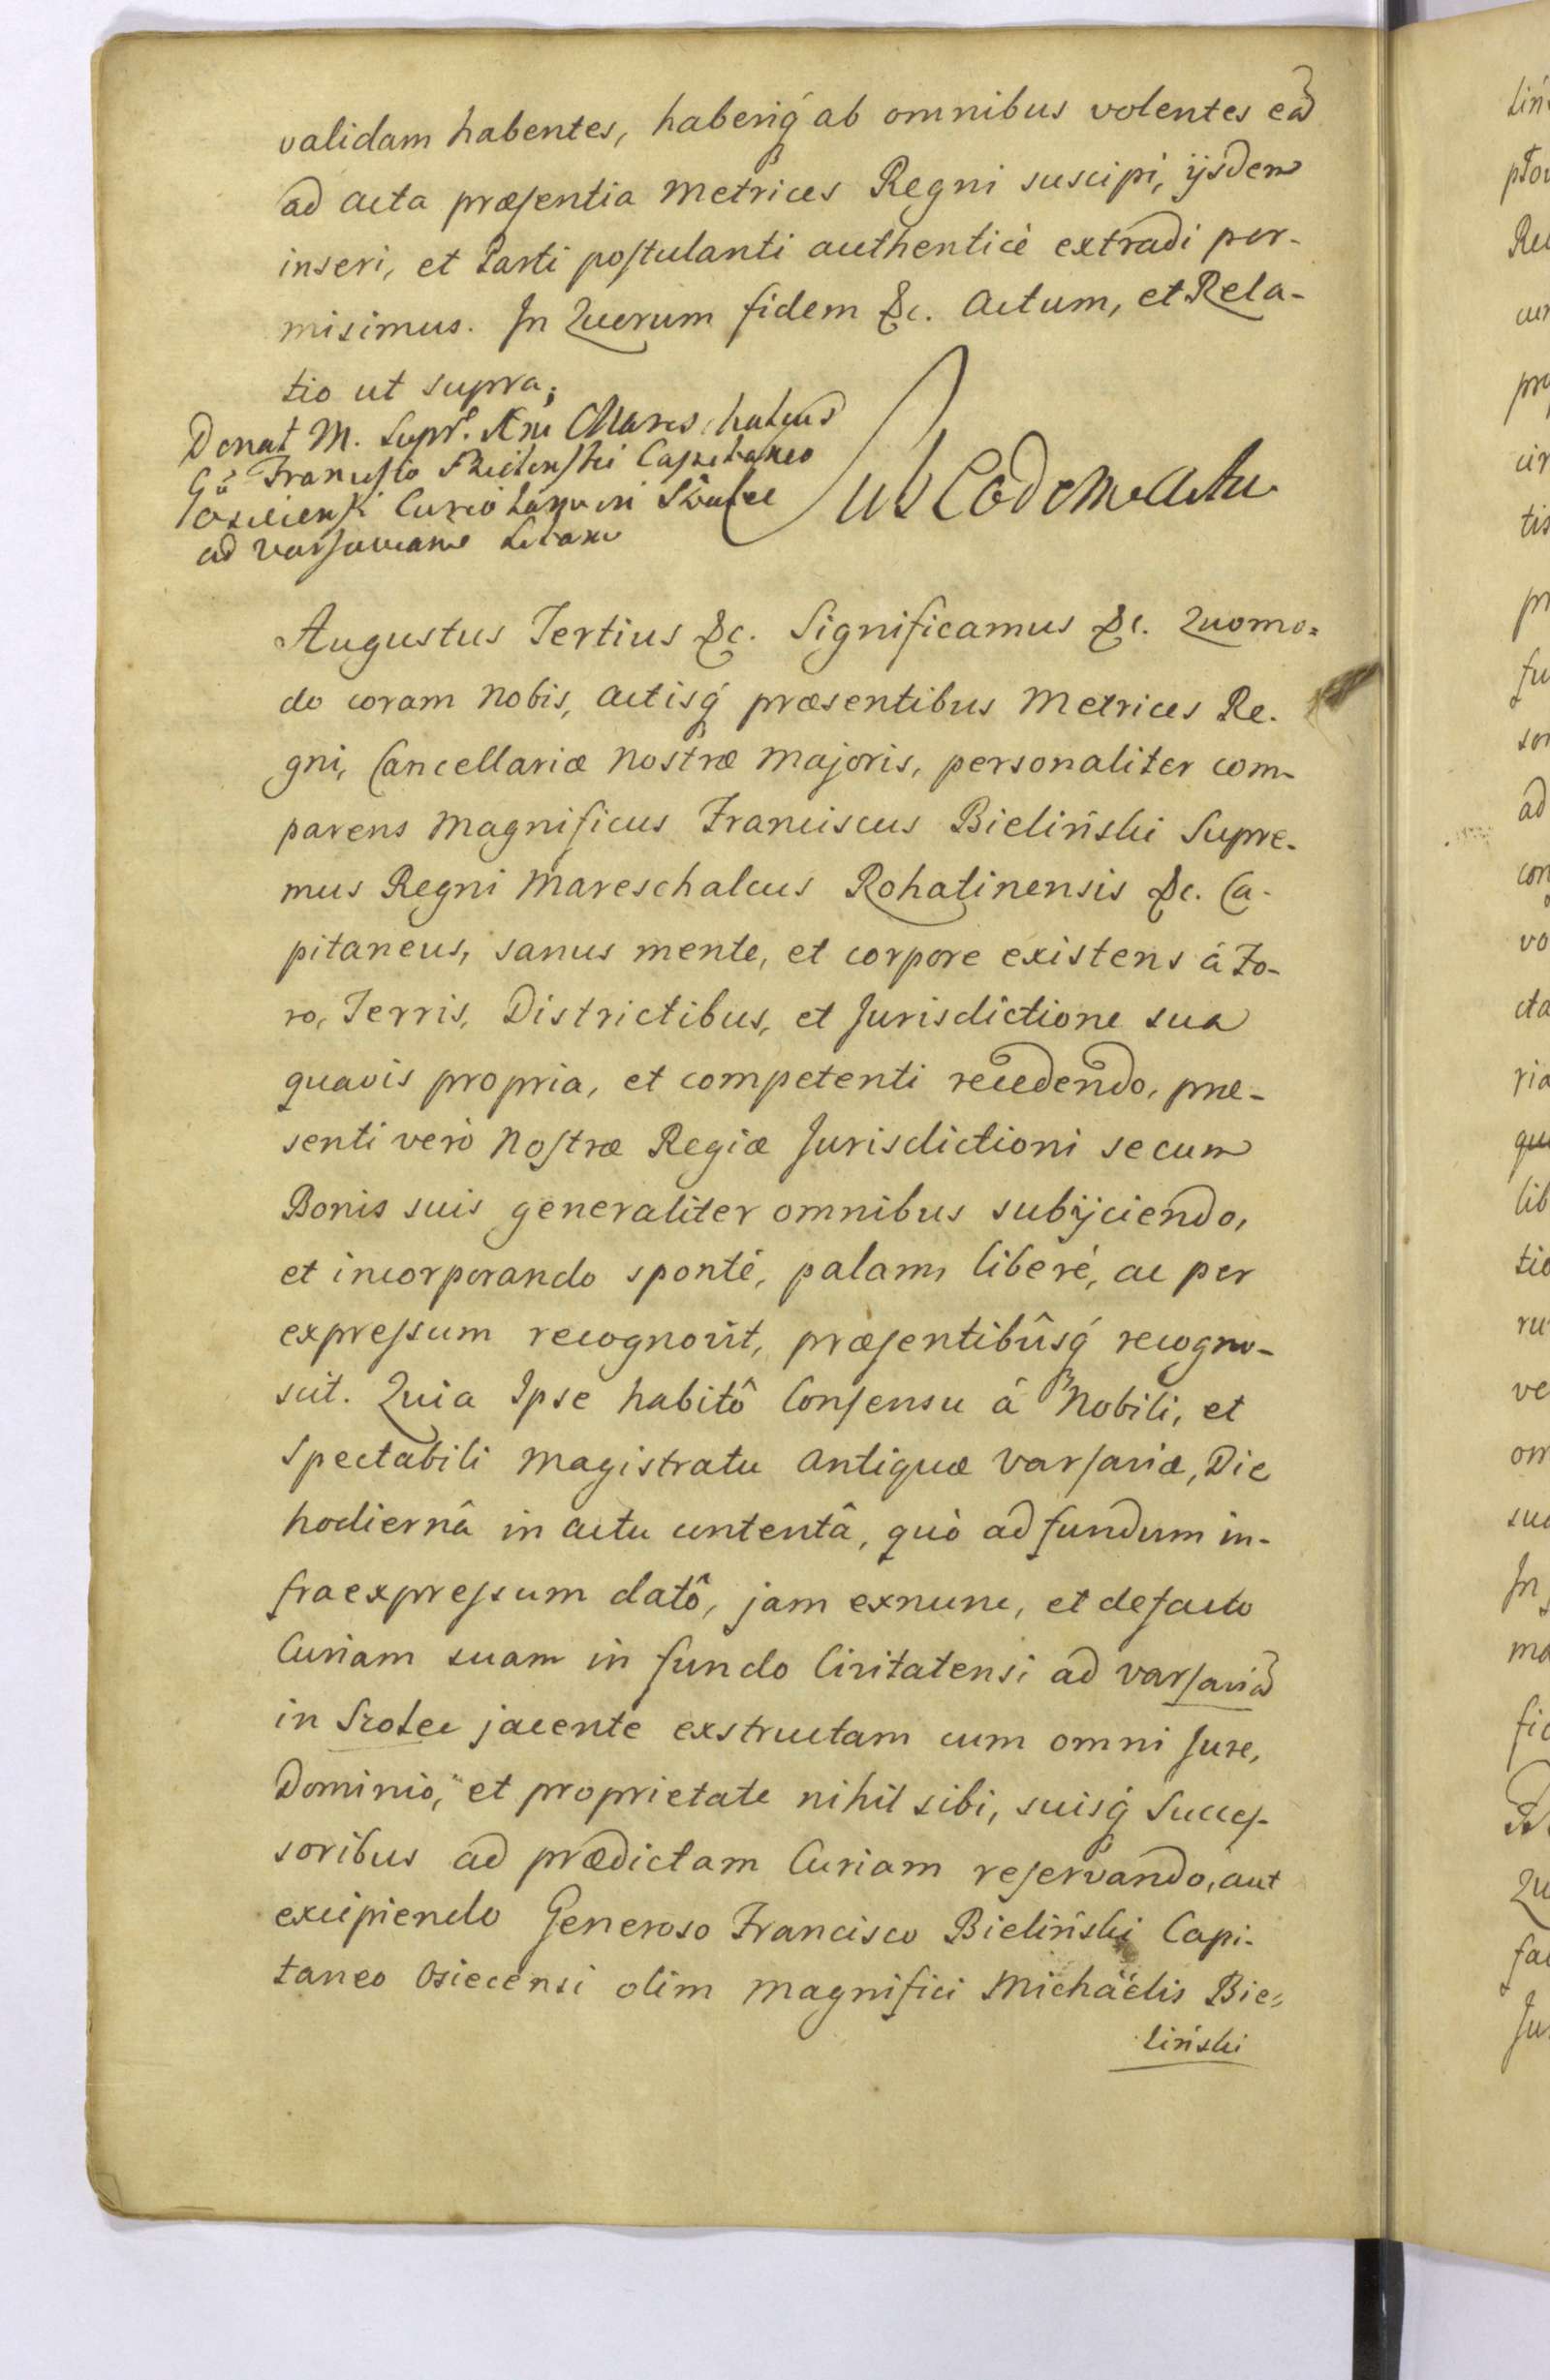 validam habentes, haberiq́ ab omnibus volentes eã
ad acta præsentia Metrices Regni suscipi, ijsdem
inseri, et Parti postulanti authenticè extradi per-
misimus. In Quorum fidem &c. Actum, et Rela-
tio ut supra;
Donat M. Supr. Rni Mareschalcus
Francisco Bielinski Capitaneo
ad Varsaviam
Sub Eodem Actu
Augustus Tertius &c. Significamus &c. Quomo=
do coram Nobis, Actisq́ præsentibus Metrices Re-
gni, Cancellariæ Nostræ Majoris, personaliter com-
parens Magnificus Franciscus Bieliński Supre-
mus Regni Mareschalcus Rohatinensis &c. Ca-
pitaneus, sanus mente, et corpore existens á Fo-
ro, Terris, Districtibus, et Jurisdictione sua
quavis propria, et competenti recedendo, præ-
senti verò Nostræ Regiæ Jurisdictioni se cum
Bonis suis generaliter omnibus subijciendo,
et incorporando spontè, palam liberè, ac per
expressum recognovit, præsentibûsq́ recogno-
scit. Quia Ipse habitô Consensu á Nobili, et
Spectabili Magistratu Antiquæ Varsaviæ, Die
hodiernâ in actu contentâ, quò ad fundum in-
fraexpressum datô, jam exnunc, et defacto
Curiam suam in fundo Civitatensi ad Varsaviã
in Szolec jacente exstructam cum omni Jure,
Dominio, et proprietate nihil sibi, suisq́ Succes-
soribus ad prædictam Curiam reservando, aut
excipiendo Generoso Francisco Bieliński Capi-
taneo Osiecensi olim Magnifici Michaëlis Bie=
liński